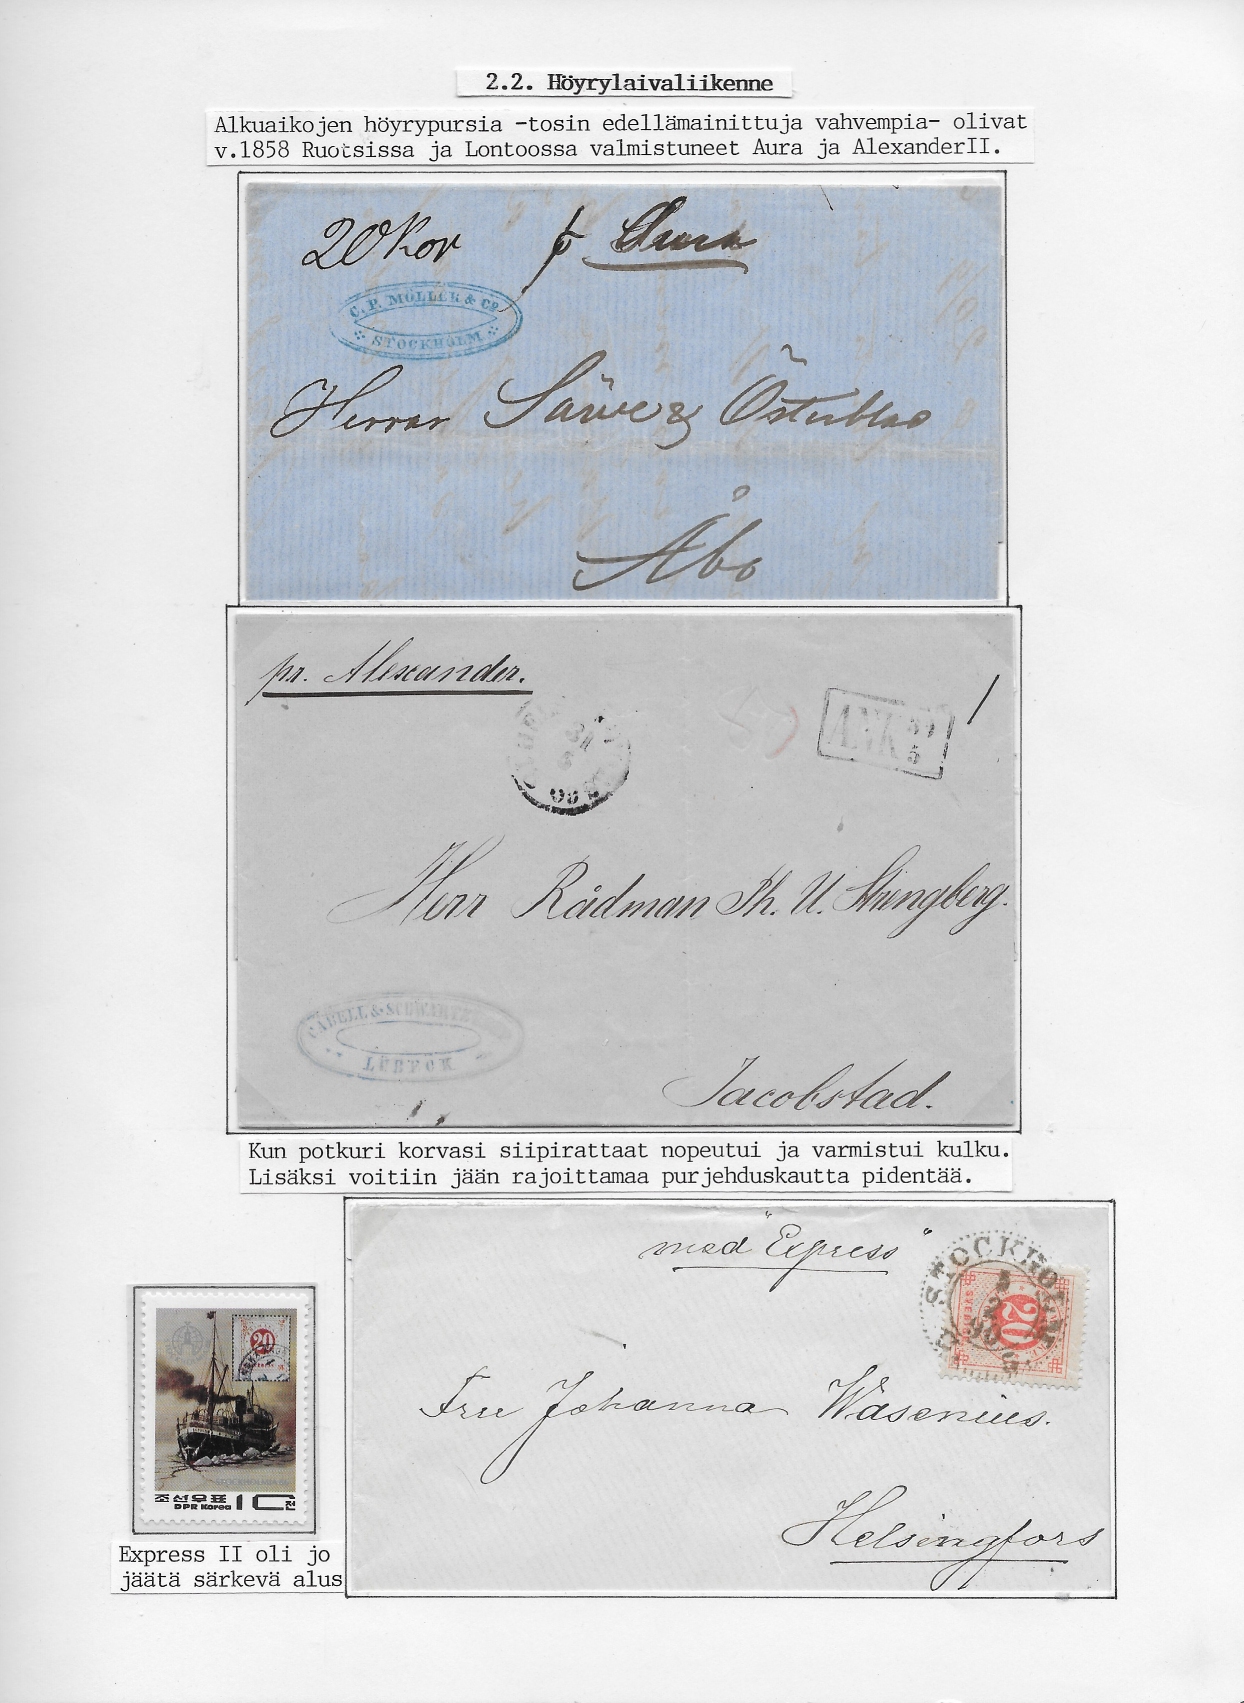 2.2. Höyrylaivaliikenne
Alkuaikojen höyrypursia -tosin edellämainittuja vahvempia- olivat
v.1858 Ruotsissa ja Lontoossa valmistuneet Aura ja AlexanderII.
20 Kop p Aura
C. P. MÖLLER & CO.
STOCKHOLM
Herrar & Österblad
Åbo
pr. Alexander.
ANK
5
Herr Rådman Ph. U. Strengberg.
CABELL &
LÜBECK
Jacobstad.
Kun potkuri korvasi siipirattaat nopeutui ja varmistui kulku.
Lisäksi voitiin jään rajoittamaa purjehduskautta pidentää.
med "Express"
STOCKHOLM
20
Fru Johanna Wasenius.
Helsingfors
20
STOCKHOLMIA 86
조선우표 10전
DPR Korea
Express II oli jo
jäätä särkevä alus